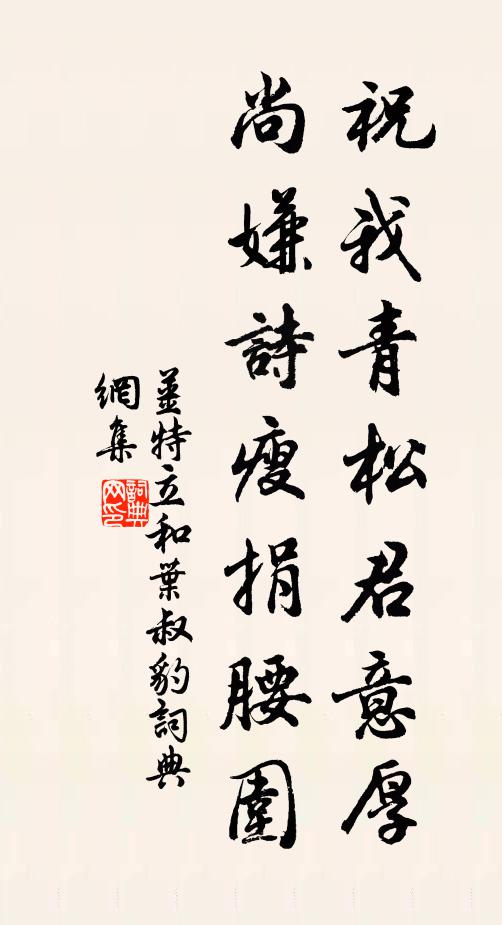 祝我青松君意厚
尚嫌詩瘦捐腰圍
姜特立和葉叔豹詞典
網集
詞典
网印